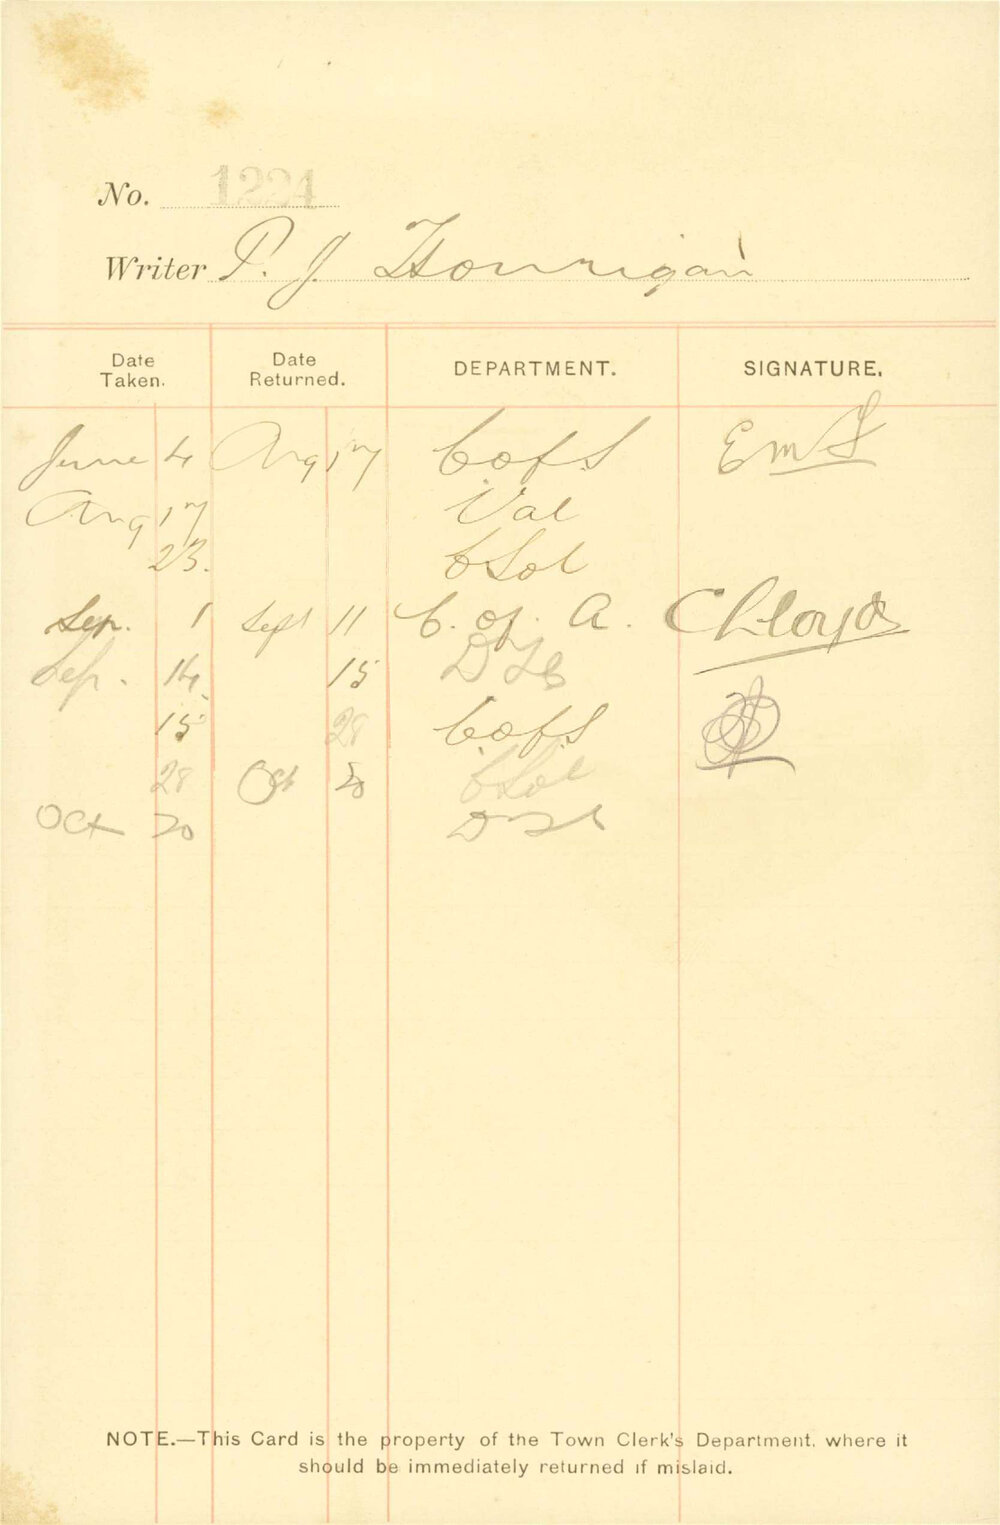 No. 1224
Writer P. J. Hourigan
Date Taken. Date Returned. DEPARTMENT. SIGNATURE.
June 4 Aug 17 C of S EmS
Aug 17 Val
23. C Sol
Sep. 1 Sept 11 C. of. A. CLloyd
Sep. 14. 15
15 28 C of S
28 Oct 20 C Sol
Oct 20
NOTE.—This Card is the property of the Town Clerk's Department, where it
should be immediately returned if mislaid.